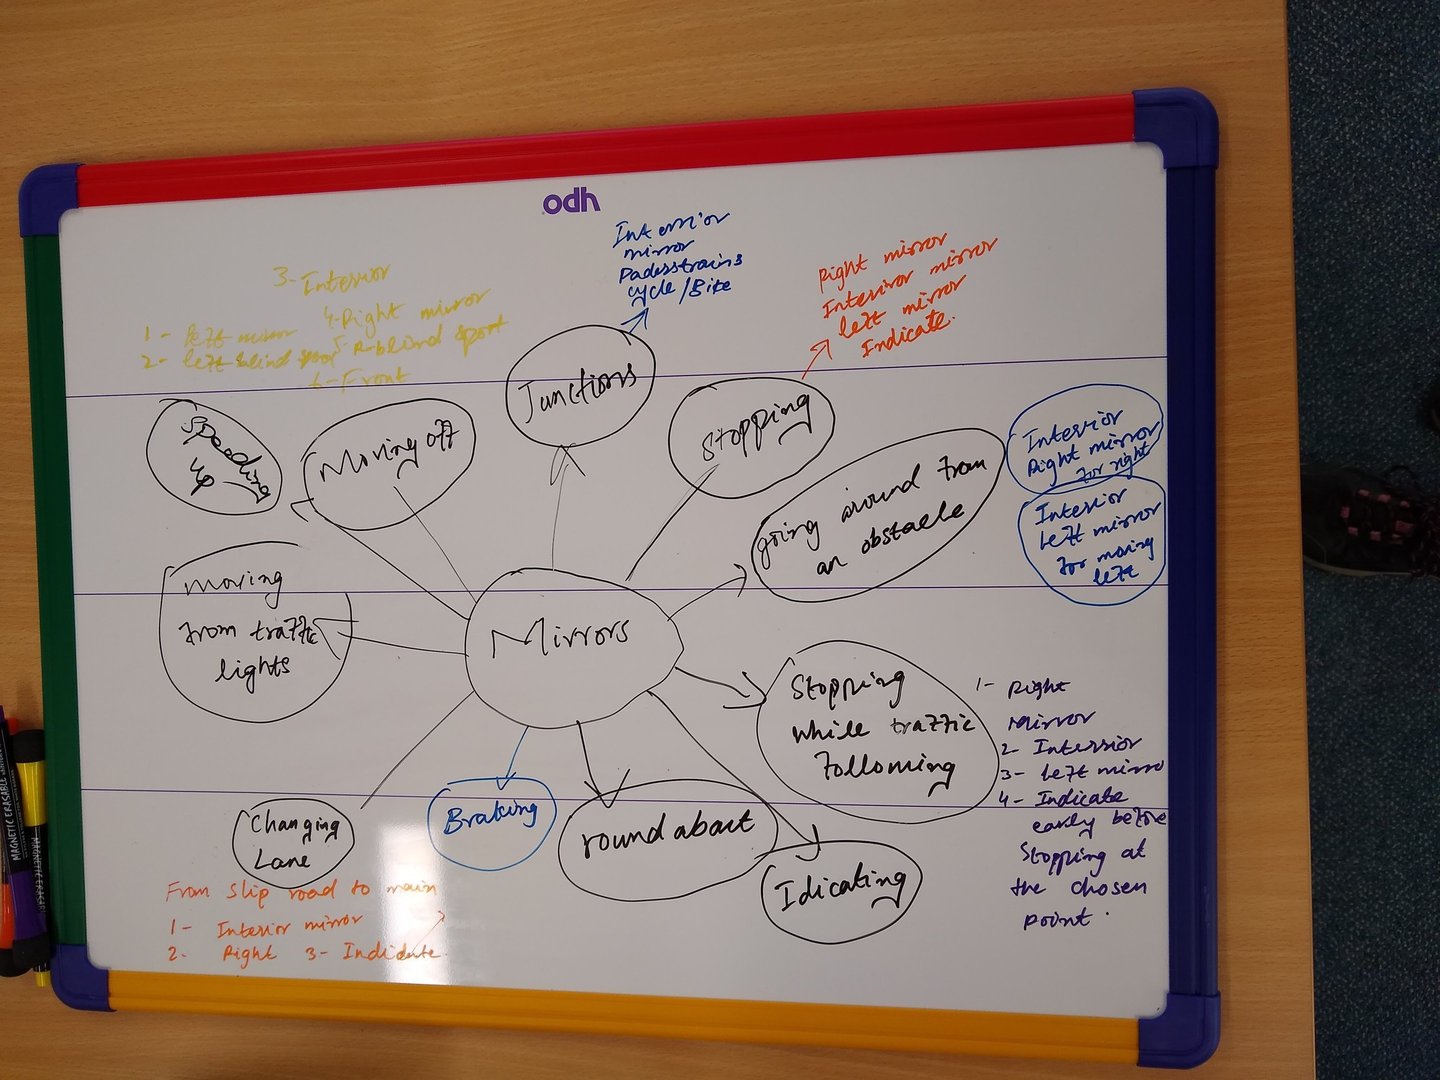 odh
Interrior
mirror
Padesstrains
cycle/Bike
Right mirror
Interiror mirror
left mirror
Indicate.
3- Interior
4- Right mirror
5- R-blind sport
6- Front
1- left mirror
2- left blind spor
Junctions
Stopping
Moving off
Speeding
up
going around from
an obstacle
Interior
Right mirror
for right
Interior
Left mirror
for moving
left
Moving
from traffic
lights
Mirrors
Stopping
while traffic
following
1- Right
Mirror
2- Interrior
3- left mirro
4- Indicate
early before
Stopping at
the chosen
point.
Changing
Lane
Braking
round about
Idicating
From slip road to main
1- Interior mirror
2- Right 3- Indidate
MAGNETIC ERASABLE